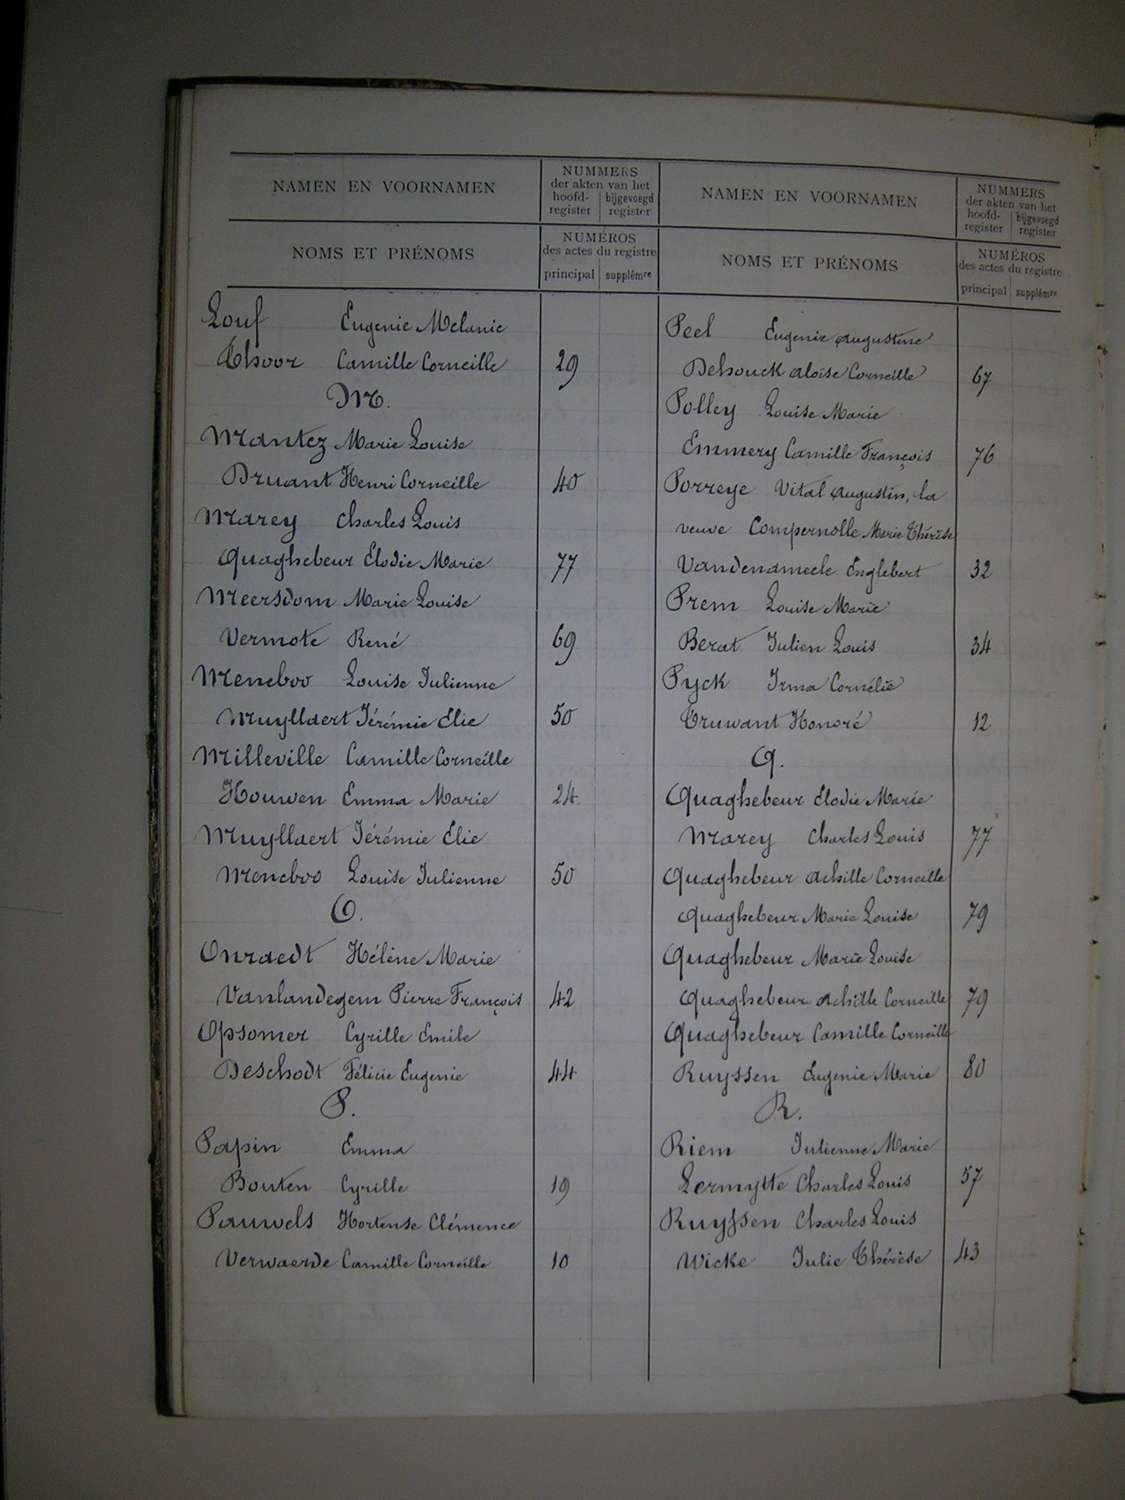 NAMEN EN VOORNAMEN
NUMMERS
der akten van het
hoofd-register
bijgevoegd register
NOMS ET PRÉNOMS
NUMÉROS
des actes du registre
principal
supplémre
Louf Eugenie Melanie
Thoor Camille Corneille 29
M.
Mantez Marie Louise
Druant Henri Corneille 40
Marey Charles Louis
Quaghebeur Elodie Marie 77
Meersdom Marie Louise
Vermote René 69
Meneboo Louise Julienne
Muyllaert Jérémie Elie 50
Milleville Camille Corneille
Houwen Emma Marie 24
Muyllaert Jérémie Elie
Meneboo Louise Julienne 50
O.
Onraedt Hélène Marie
Vanlandegem Pierre François 42
Opsomer Cyrille Emile
Deschodt Félicie Eugenie 44
P.
Papin Emma
Bouten Cyrille 19
Pauwels Hortense Clémence
Verwaerde Camille Corneille 10
NAMEN EN VOORNAMEN
NUMMERS
der akten van het
hoofd-register
bijgevoegd register
NOMS ET PRÉNOMS
NUMÉROS
des actes du registre
principal
supplémre
Peel Eugenie Augustine
Dehouck Aloïse Corneille 67
Polley Louise Marie
Emmery Camille François 76
Porreye Vital Augustin, la
veuve Compernolle Marie Thérèse
Vandenameele Englebert 32
Prem Louise Marie
Berat Julien Louis 34
Pyck Irma Cornélie
Truwant Honoré 12
Q.
Quaghebeur Elodie Marie
Marey Charles Louis 77
Quaghebeur Achille Corneille
Quaghebeur Marie Louise 79
Quaghebeur Marie Louise
Quaghebeur Achille Corneille 79
Quaghebeur Camille Corneille
Ruyssen Eugenie Marie 80
R.
Riem Julienne Marie
Lermytte Charles Louis 57
Ruyssen Charles Louis
Wicke Julie Thérèse 43